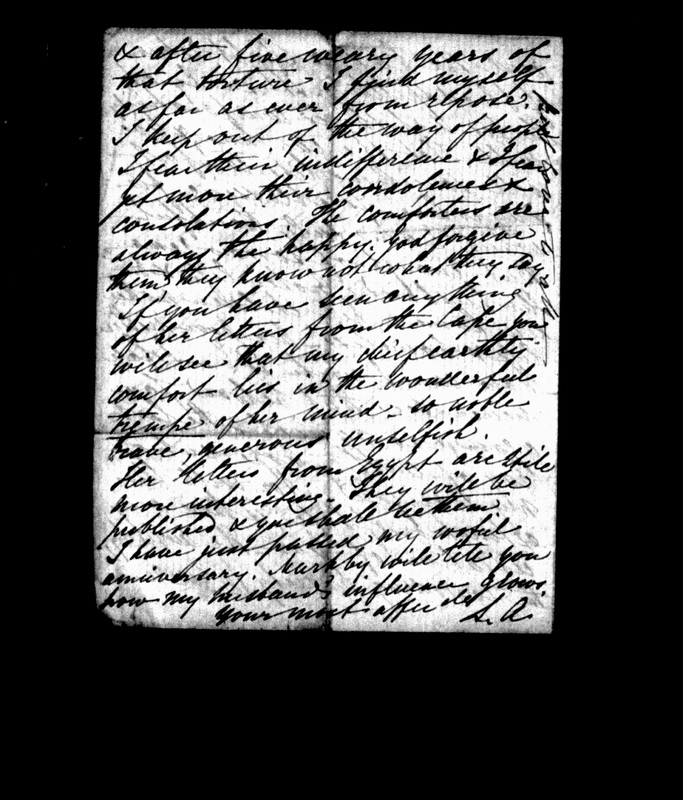 & after five weary years of
that torture I find myself
as far as ever from repose.
I keep out of the way of people
I fear their indifference & I fear
yet more their condolences &
consolations. The comforters are
always the happy. God forgive
them they know not what they say
If you have seen any thing
of her letters from the Cape you
will see that my chief earthly
comfort lies in the wonderful
trempe of her mind - so noble
brave, generous unselfish.
Her letters from Egypt are still
more interesting. They will be
published & you shall see them
I have just passed my woful
anniversary. Markby will tell you
how my husband's influence grows.
Your most affec
S. A.